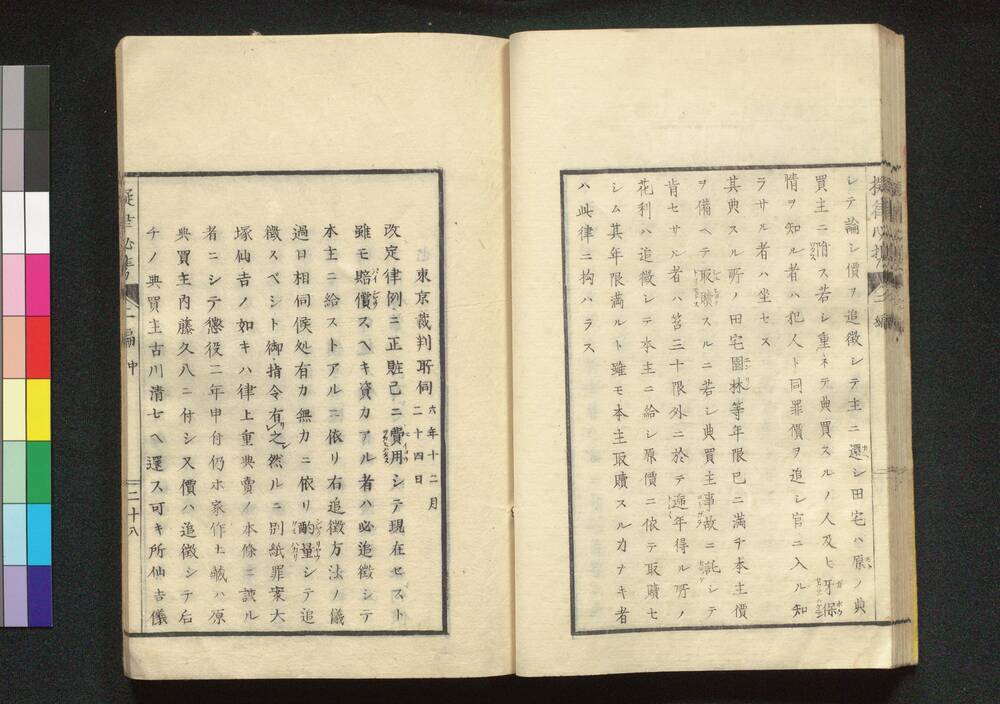 シテ論シ價ヲ追徴シテ主ニ還シ田宅ハ原ノ典
買主ニ附ス若シ重ネテ典買スルノ人及ヒ牙保
情ヲ知ル者ハ犯人ト同罪價ヲ追シ官ニ入ル知
ラサル者ハ坐セス
其典スル所ノ田宅園林等年限已ニ満チ本主價
ヲ備ヘテ取贖スルニ若シ典買主事故ニ託シテ
肯セサル者ハ笞三十限外ニ於テ逓年得ル所ノ
花利ハ追徴シテ本主ニ給シ原價ニ依テ取贖セ
シム其年限満ルト雖モ本主取贖スルカナキ者
ハ此律ニ拘ハラス
東京裁判所伺 六年十二月二十四日
改定律例ニ正贓已ニ費用シテ現在セスト
雖モ賠償スヘキ資力アル者ハ必追徴シテ
本主ニ給ストアルニ依リ右追徴方法ノ儀
過日相伺候処有力無力ニ依リ酌量シテ追
徴スベシト御指令有之然ルニ別紙罪案大
塚仙吉ノ如キハ律上重典賣ノ本條ニ該ル
者ニシテ懲役二年申付仍ホ家作土藏ハ原
典買主内藤久八ニ付シ又價ハ追徴シテ后
チノ典買主古川清七ヘ還ス可キ所仙吉儀
二編 中
二十八